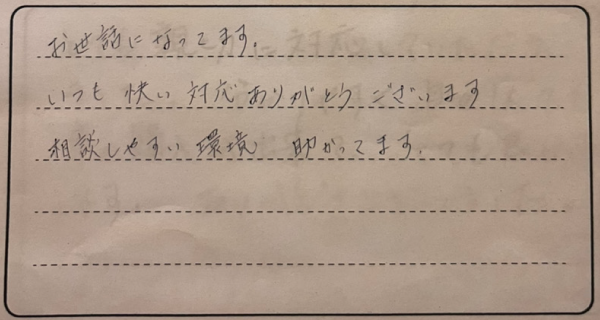 お世話になってます。
いつも 快い 対応 ありがとう ございます
相談しやすい 環境 助かってます。